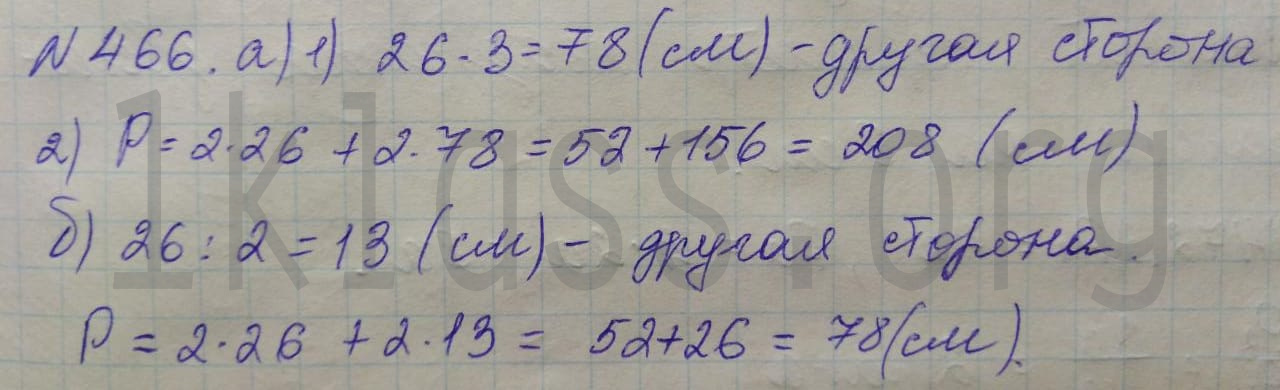 N 466. а) 1) 26·3=78(см) - другая сторона
2) P=2·26+2·78=52+156=208 (см)
б) 26:2=13 (см) - другая сторона.
P=2·26+2·13=52+26=78(см).
1klass.org